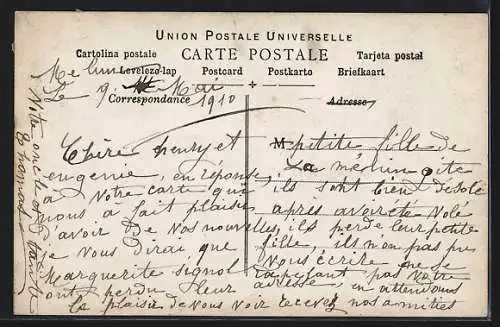 UNION POSTALE UNIVERSELLE
Cartolina postale CARTE POSTALE Tarjeta postal
Levelező-lap Postcard Postkarto Briefkaart
Correspondance Adresse
Le 9 Mai
1910
Chère fleury et
eugenie, en réponse
a Notre carte qui
nous à fait plaisir
d'avoir de Vos nouvelles,
je Vous dirai que
Marguerite signol
ont perdu leur
M petite fille de
La méningite
ils sont bien desolé
après avoir été Volé
ils perde leur petite
fille, ils m'on pas pu
Vous écrire en se
rapelant pas Votre
adresse, en attendons
le plaisir de Vous Voir recevez nos amitiés
Votre oncle et tante